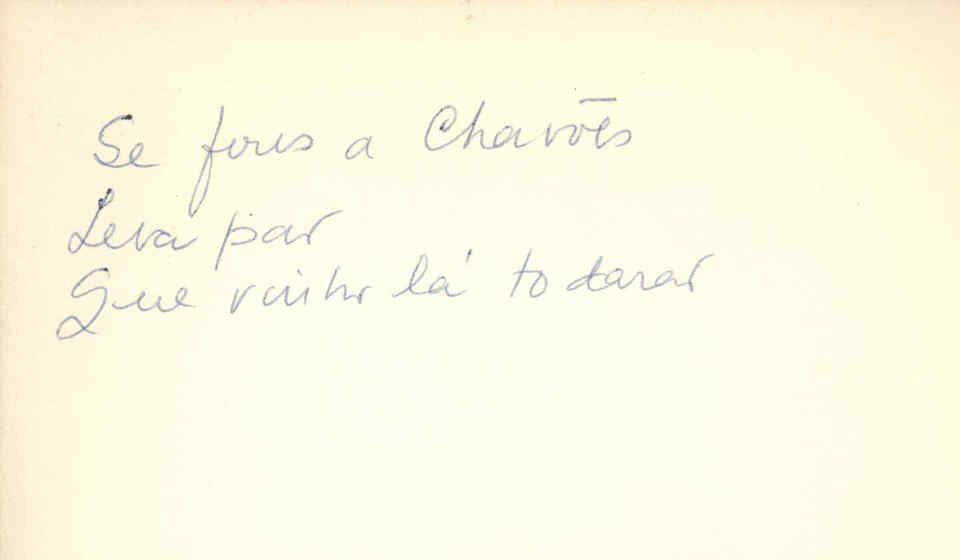 Se fores a Chavões
Leva pão
Que vinho lá to darão